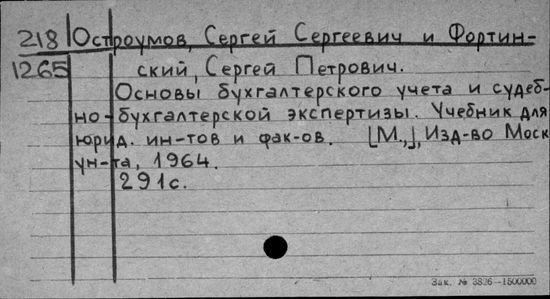 218 Остроумов, Сергей Сергеевич и Фортин-
1265 ский, Сергей Петрович.
Основы бухгалтерского учета и судеб-
но-бухгалтерской экспертизы. Учебник для
юрид. ин-тов и фак-ов. [М.,], Изд-во Моск
ун-та, 1964.
291с.
Зак. № 3826—1500000